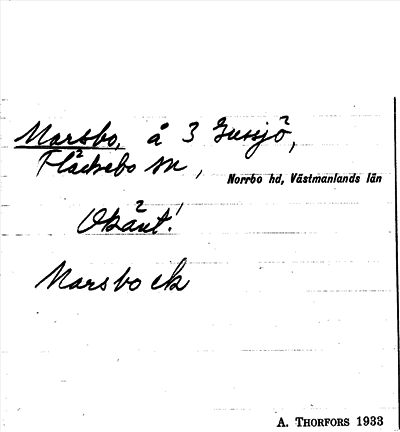 Marsbo, å 3 Gussjö,
Fläckebo sn,
Norrbo hd, Västmanlands län
Okänt!
Marsbo ek
A. THORFORS 1933